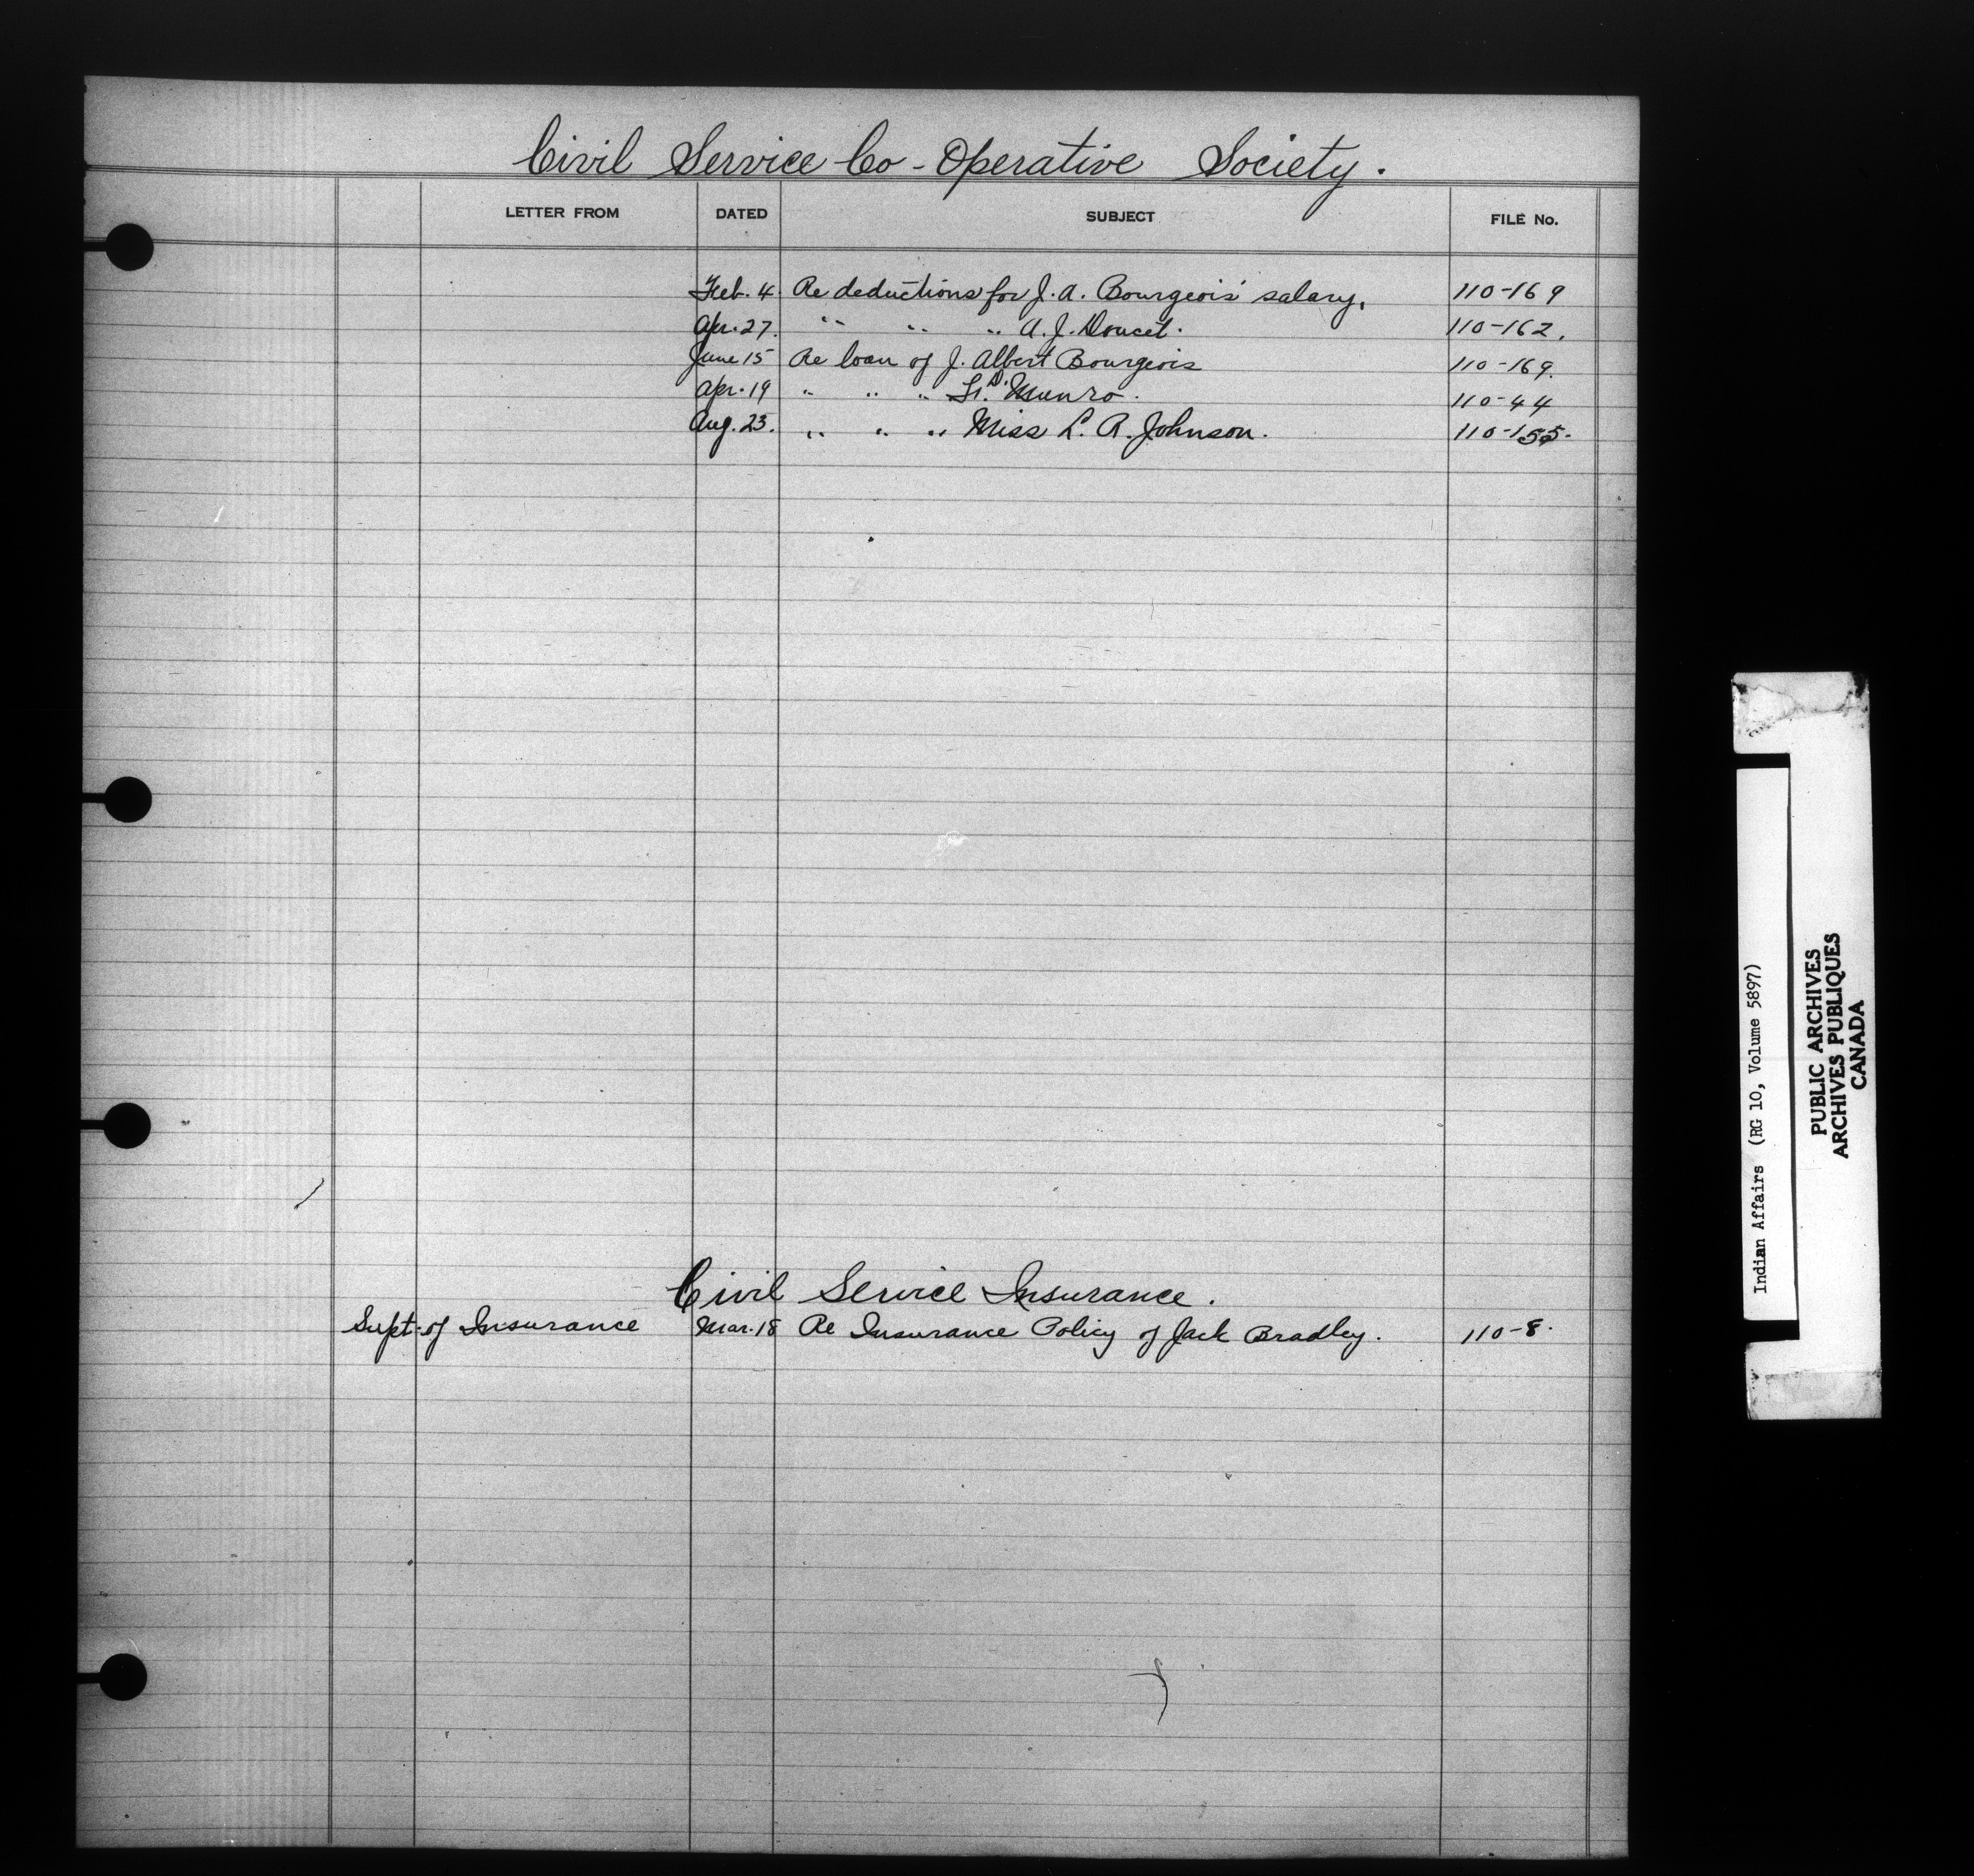 Civil Service Co-Operative Society.
LETTER FROM DATED SUBJECT FILE No.
Feb. 4. Re deductions for J. A. Bourgeois' salary, 110-169
Apr. 27. " " " A. J. Doucet. 110-162.
June 15 Re loan of J. Albert Bourgeois 110-169.
Apr. 19 " " " D. Munro. 110-44
Aug. 23. " " " Miss L. A. Johnson. 110-155.
Civil Service Insurance.
Supt. of Insurance Mar. 18 Re Insurance Policy of Jack Bradley. 110-8.
Indian Affairs (RG 10, Volume 5897)
PUBLIC ARCHIVES
ARCHIVES PUBLIQUES
CANADA